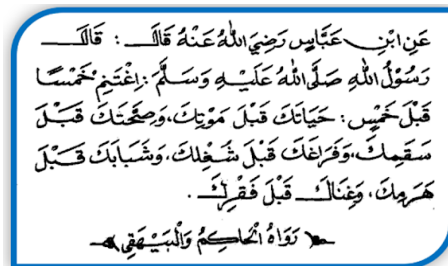 عَنِ ابْنِ عَبَّاسٍ رَضِيَ اللهُ عَنْهُ قَالَ : قَالَ
رَسُوْلُ اللهِ صَلَّى اللهُ عَلَيْهِ وَسَلَّمَ : اِغْتَنِمْ خَمْسًا
قَبْلَ خَمْسٍ : حَيَاتَكَ قَبْلَ مَوْتِكَ، وَصِحَّتَكَ قَبْلَ
سَقَمِكَ، وَفَرَاغَكَ قَبْلَ شُغْلِكَ، وَشَبَابَكَ قَبْلَ
هَرَمِكَ، وَغِنَاكَ قَبْلَ فَقْرِكَ .
رَوَاهُ الْحَاكِمُ وَالْبَيْهَقِى